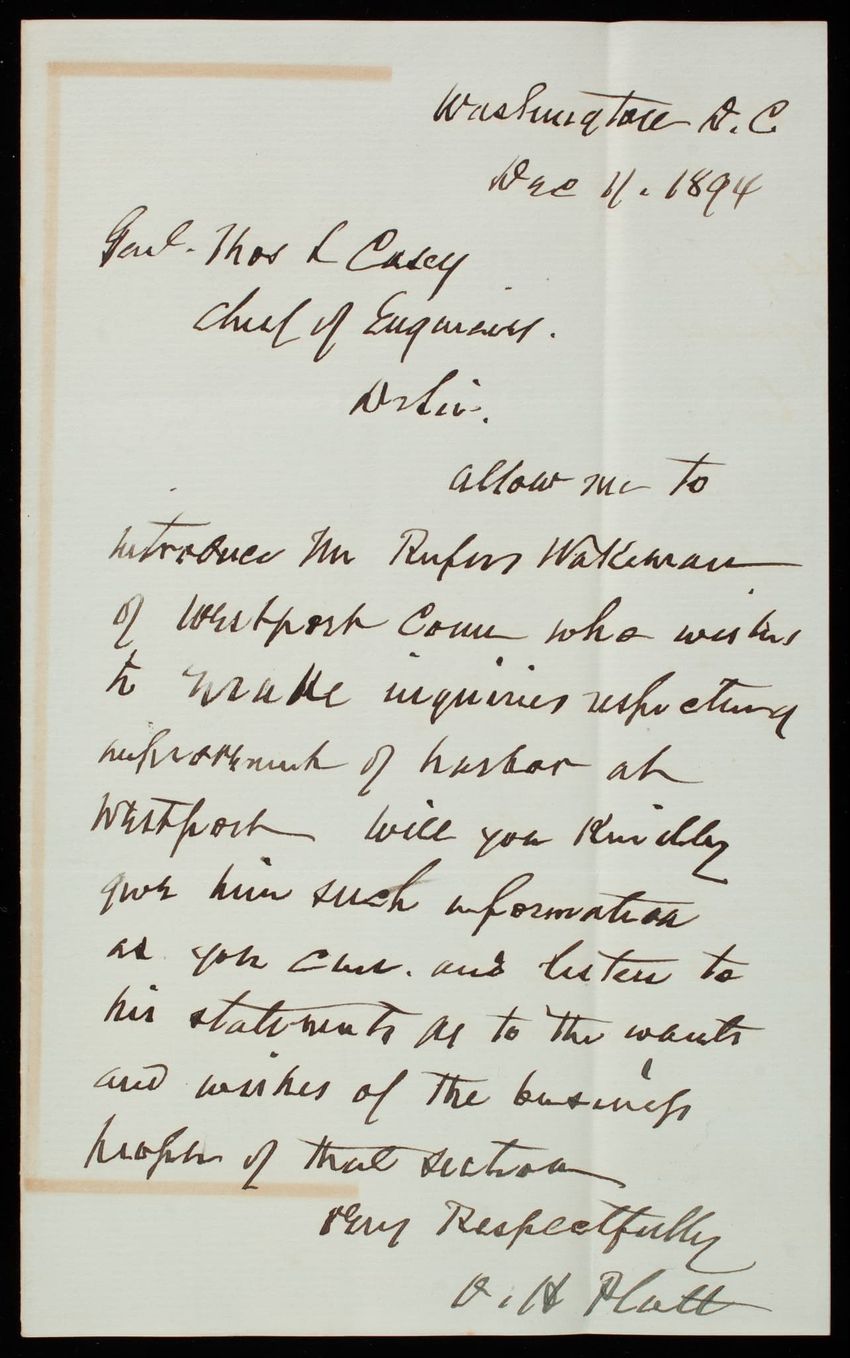 Washington D. C.
Dec 11. 1894
Genl. Thos L Casey
Chief of Engineers.
Dr Sir.
allow me to
introduce Mr Rufus Wakeman
of Westport Conn who wishes
to make inquiries respecting
improvement of harbor at
Westport will you kindly
give him such information
as you can. and listen to
his statements as to the wants
and wishes of the business
people of that section
Very Respectfully
O. H Platt